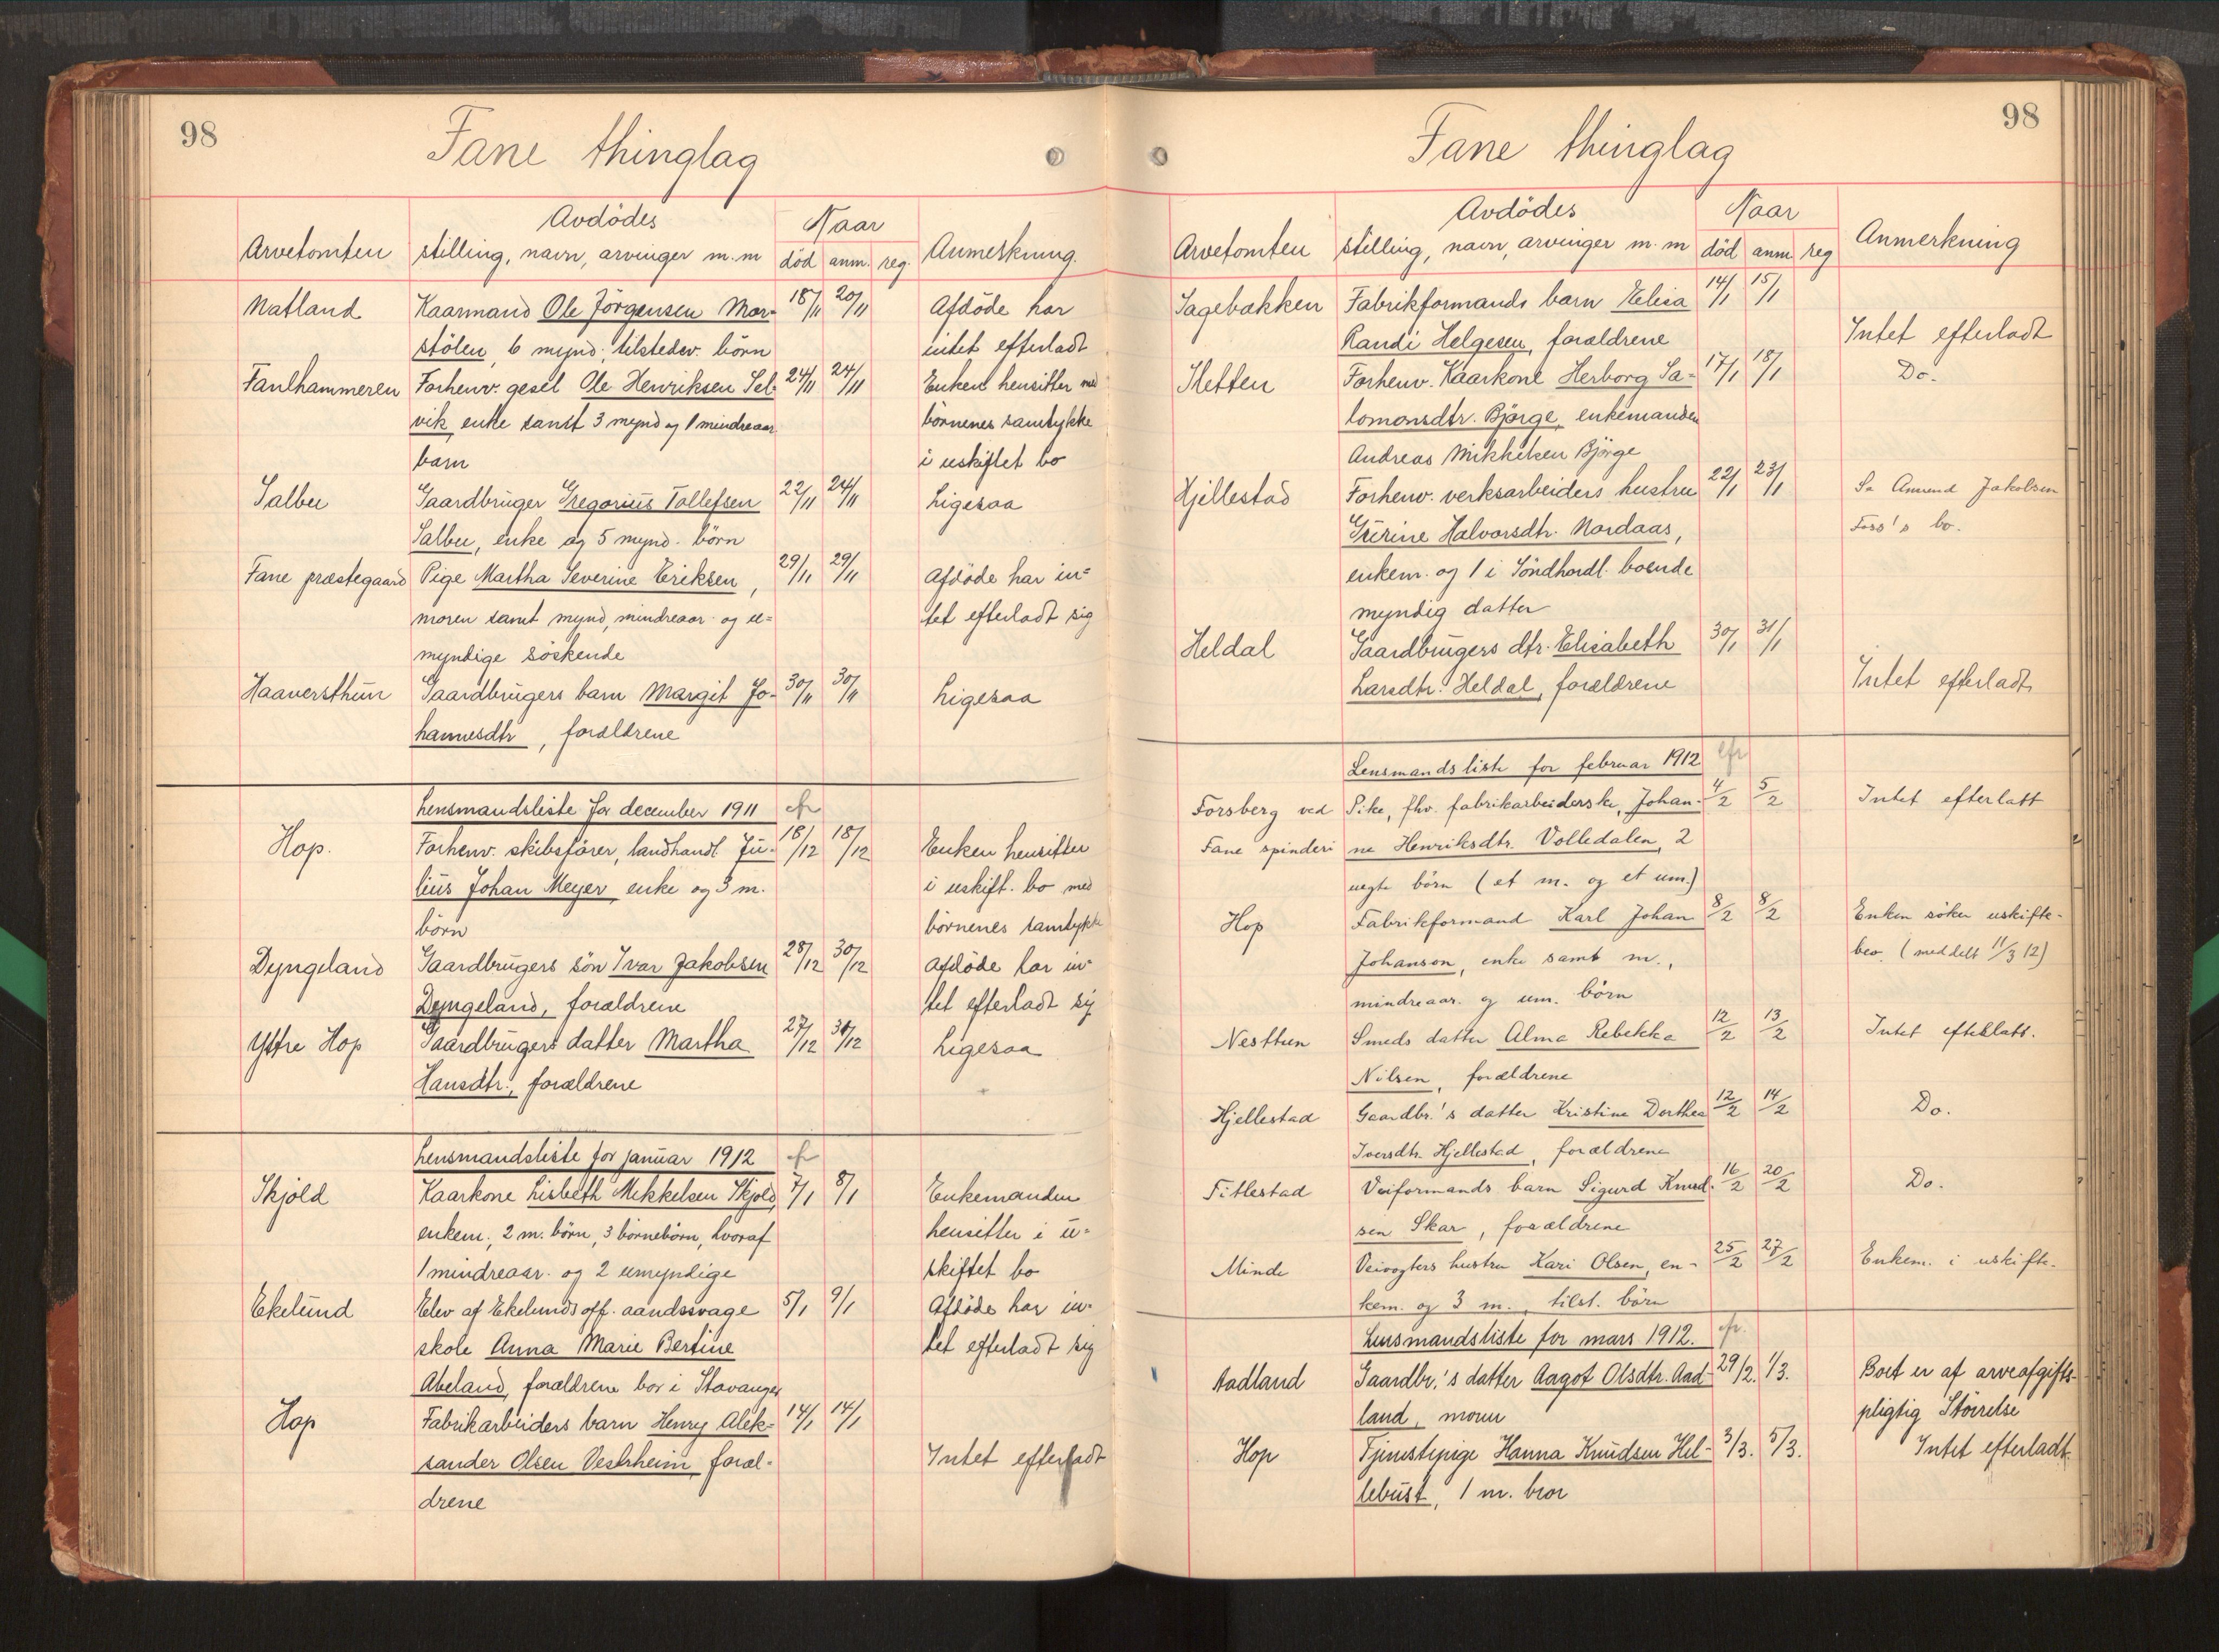 98
Fane thinglag
Arvetomten
Avdödes
stilling, navn, arvinger m.m
Naar
död anm. reg.
Anmerkning.
Natland Kaarmand Ole Jörgensen Mor- 18/11 20/11 Afdöde har
stölen, 6 mynd. tilstedev. börn intet efterladt
Fanlhammeren Forhenv. gesel Ole Henriksen Sel- 24/11 24/11 Enken hensitter med
vik, enke samt 3 mynd og 1 mindreaar. börnenes samtykke
barn i uskiftet bo
Salbu Gaardbruger Gregorius Tollefsen 22/11 24/11 Ligesaa
Salbu, enke og 5 mynd. börn
Fane præstegaard Pige Martha Severine Eriksen, 29/11 29/11 Afdöde har in-
moren samt mynd, mindreaar. og u- tet efterladt sig
myndige söskende
Haaversthun Gaardbrugers barn Margit Jo- 30/11 30/11 Ligesaa
hannesdtr, forældrene
Lensmandsliste for december 1911 cfr
Hop. Forhenv. skibsförer, landhandl. Ju- 18/12 18/12 Enken hensitter
lius Johan Meyer, enke og 3 m. i uskift. bo med
börn börnenes samtykke
Dyngeland Gaardbrugers sön Ivar Jakobsen 28/12 30/12 Afdöde har in-
Dyngeland, forældrene tet efterladt sig
Yttre Hop Gaardbrugers datter Martha 27/12 30/12 Ligesaa
Hansdtr., forældrene
Lensmandsliste for januar 1912 cfr
Skjold Kaarkone Lisbeth Mikkelsen Skjold, 7/1 8/1 Enkemanden
enkem., 2 m. börn, 3 börnebörn, hvoraf hensitter i u-
1 mindreaar. og 2 umyndige skiftet bo
Ekelund Elev af Ekelunds off. aandssvage 5/1 9/1 Afdöde har in-
skole Anna Marie Bertine tet efterladt sig
Abeland, forældrene bor i Stavanger
Hop Fabrikarbeiders barn Henry Alek- 14/1 14/1
sander Olsen Vestrheim, foræl- Intet efterladt
drene
98
Fane thinglag
Arvetomten
Avdödes
stilling, navn, arvinger m.m
Naar
död anm reg
Anmerkning
Sagebakken Fabrikformands barn Elisa 14/1 15/1
Randi Helgesen, forældrene Intet efterladt
Sletten Forhenv. Kaarkone Herborg Sa- 17/1 18/1 Do.
lomonsdtr. Bjørge, enkemanden
Andreas Mikkelsen Bjørge
Hjellestad Forhenv. verksarbeiders hustru 22/1 23/1 Se Amund Jakobsen
Gurine Halvorsdtr. Nordaas, Foss's bo.
enkem. og 1 i Söndhordl. boende
myndig datter
Heldal Gaardbrugers dtr. Elisabeth 30/1 31/1
Larsdtr. Heldal, forældrene Intet efterladt
Lensmandsliste for februar 1912 cfr
Forsberg ved Pike, fhv. fabrikarbeiderske, Johan- 4/2 5/2 Intet efterlatt
Fane spinderi ne Henriksdtr. Volledalen, 2
uegte börn (et m. og et um.)
Hop Fabrikformand Karl Johan 8/2 8/2 Enken söker uskifte-
Johanson, enke samt m., bev. (meddelt 11/3 12)
mindreaar. og um. börn
Nesttun Smeds datter Alma Rebekka 12/2 13/2 Intet efterlatt.
Nilsen, forældrene
Hjellestad Gaardbr.'s datter Kristine Dorthea 12/2 14/2 Do.
Iversdtr. Hjellestad, forældrene
Titlestad Veiformands barn Sigurd Knud- 16/2 20/2 Do.
sen Skar, forældrene
Minde Veivogters hustru Kari Olsen, en- 25/2 27/2 Enkem. i uskifte.
kem. og 3 m., tilst. börn
Lensmandsliste for mars 1912. cfr.
Aadland Gaardbr.'s datter Aagot Olsdtr. Aad- 29/2. 1/3. Boet er af arveafgifts-
land, moren pligtig Störrelse
Hop Tjenestepige Hanna Knudsen Hel- 3/3. 5/3. Intet efterladt.
lebust, 1 m. bror